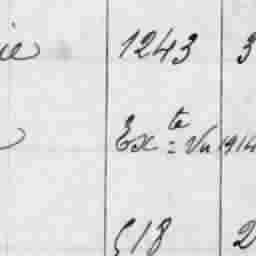 ie 1243 3
Exte = Vu 1914
518 2